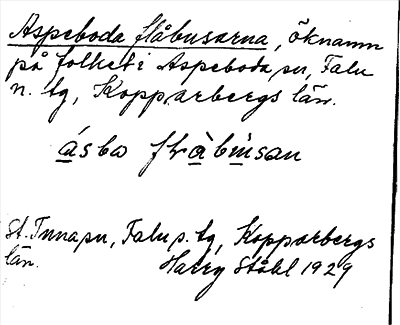 Aspeboda flåbusarna, öknamn
på folket i Aspeboda sn, Falu
n. tg, Kopparbergs län.
ásbo
St. Tuna sn, Falu s. tg, Kopparbergs
län. Harry Ståhl 1929